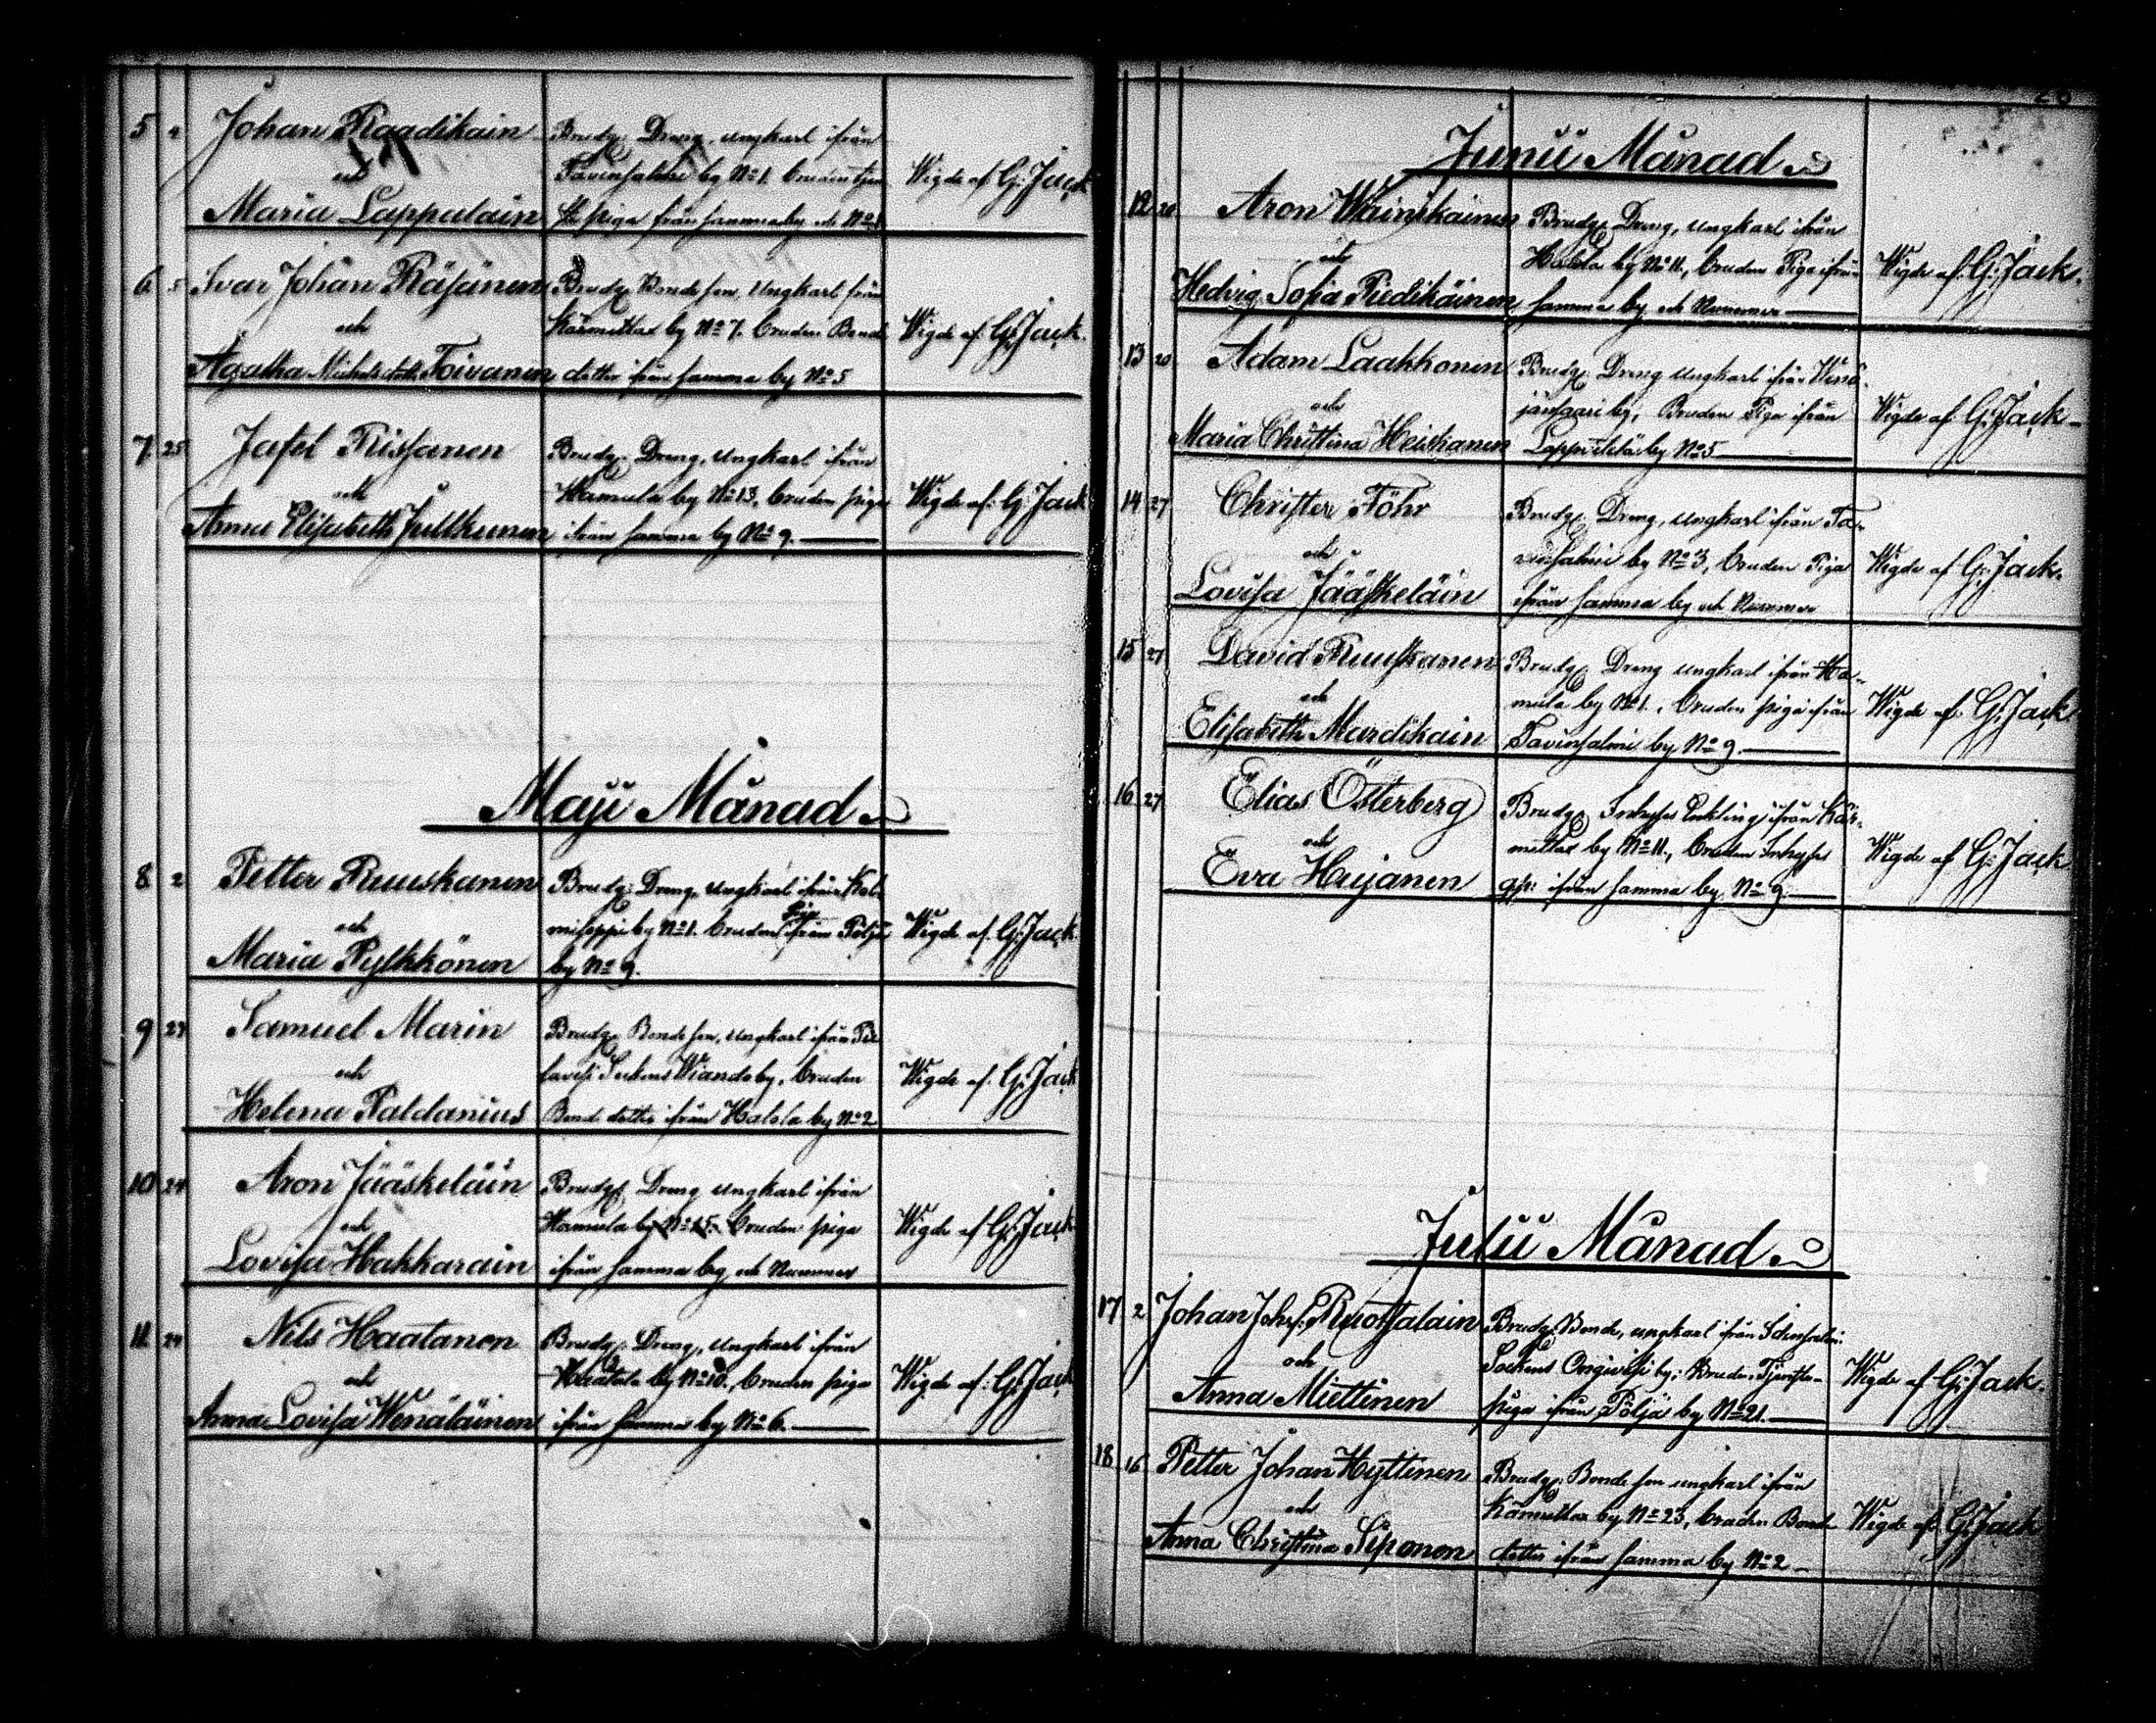 5 4 Johan Raadikain Brudg. Dreng, ungkarl ifrån
och Tavinsalmi by No 1. Bruden Wigde af G: Jack
Maria Lappalain piga från samma by och No 1
6 5 Ivar Johan Räsänen Brudg. Bonde son, Ungkarl från
och Kärmettax by No 7. Bruden Bonde Wigde af G: Jack.
Agatha Michels dotter Toivanen dotter ifrån samma by No 5
7 25 Jafet Rissanen Brudg. Dreng, Ungkarl ifrån
och Hamula by No 13. Bruden piga Wigde af: G: Jack
Anna Elisabeth Julkkunen ifrån samma by No 9.
Maji Månad
8 2 Petter Ruuskanen Brudg. Dreng, Ungkarl ifrån Kol-
och misoppi by No 1. Bruden Piga ifrån Pöljä Wigde af. G: Jack.
Maria Pylkkönen by No 9.
9 23 Samuel Marin Brudg. Bonde son, ungkarl ifrån Pie
och lavesi Sockens Wiando by, Bruden Wigde af: G: Jack
Helena Paldanius Bond dotter ifrån Halola by No 2
10 24 Aron Jääskeläin Brudg. Dreng ungkarl ifrån
och Hamula by No 15. Bruden piga Wigde af G: Jack
Lovisa Hakkarain ifrån samma by och Nummer
11 24 Nils Haatanen Brudg. Dreng, Ungkarl ifrån
och by No 10., Bruden piga Wigde af: G: Jack
Anna Lovisa Wenäläinen ifrån samma by No 6.
Junii Månad
12 20 Aron Wainikainen Brudg. Dreng, ungkarl ifrån
och Halola by No 11., Bruden Piga ifrån Wigde af: G: Jack.
Hedvig Sofia Piedikäinen samma by och Nummer
13 20 Adam Laakkonen Brudg. Dreng ungkarl ifrån Wenä-
och jänsaari by, Bruden Piga ifrån Wigde af G: Jack
Maria Christina Heiskanen Lappetelä by No 5
14 27 Christer Föhr Brudg. Dreng, ungkarl ifrån Ta-
och vinsalmi by No 3, Bruden Piga Wigde af G: Jack.
Lovisa Jääskeläin ifrån samma by och Nummer
15 27 David Ruuskanen Brudg. Dreng ungkarl ifrån Ha-
och mula by No 1., Bruden piga ifrån Wigde af. G: Jack
Elisabeth Mardikain Tavinsalmi by No 9.
16 27 Elias Österberg Brudg. Inhyses Enkling ifrån Kär-
och mettax by No 11., Bruden Inhyses Wigde af G: Jack
Eva Hujanen ifrån samma by No 9.
Julii Månad
17 2 Johan Johs: Ruotsalain Brudg. Bonde, ungkarl ifrån
och Sockens by; Brud: Tjenste- Wigde af G: Jack.
Anna Miettinen piga ifrån Pöljä by No 21.
18 16 Petter Johan Hyttinen Brudg. Bonde son ungkarl ifrån
och Kärmettax by No 23, Bruden Bond Wigde af: G: Jack
Anna Christina Siponen dotter ifrån samma by No 2